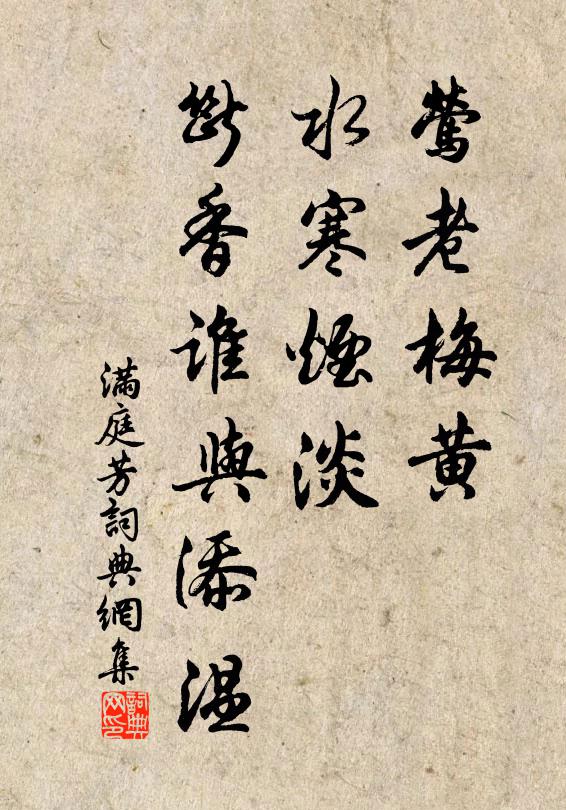 鶯老梅黃
水寒煙淡
斷香誰與添溫
滿庭芳詞典網集
詞典网印